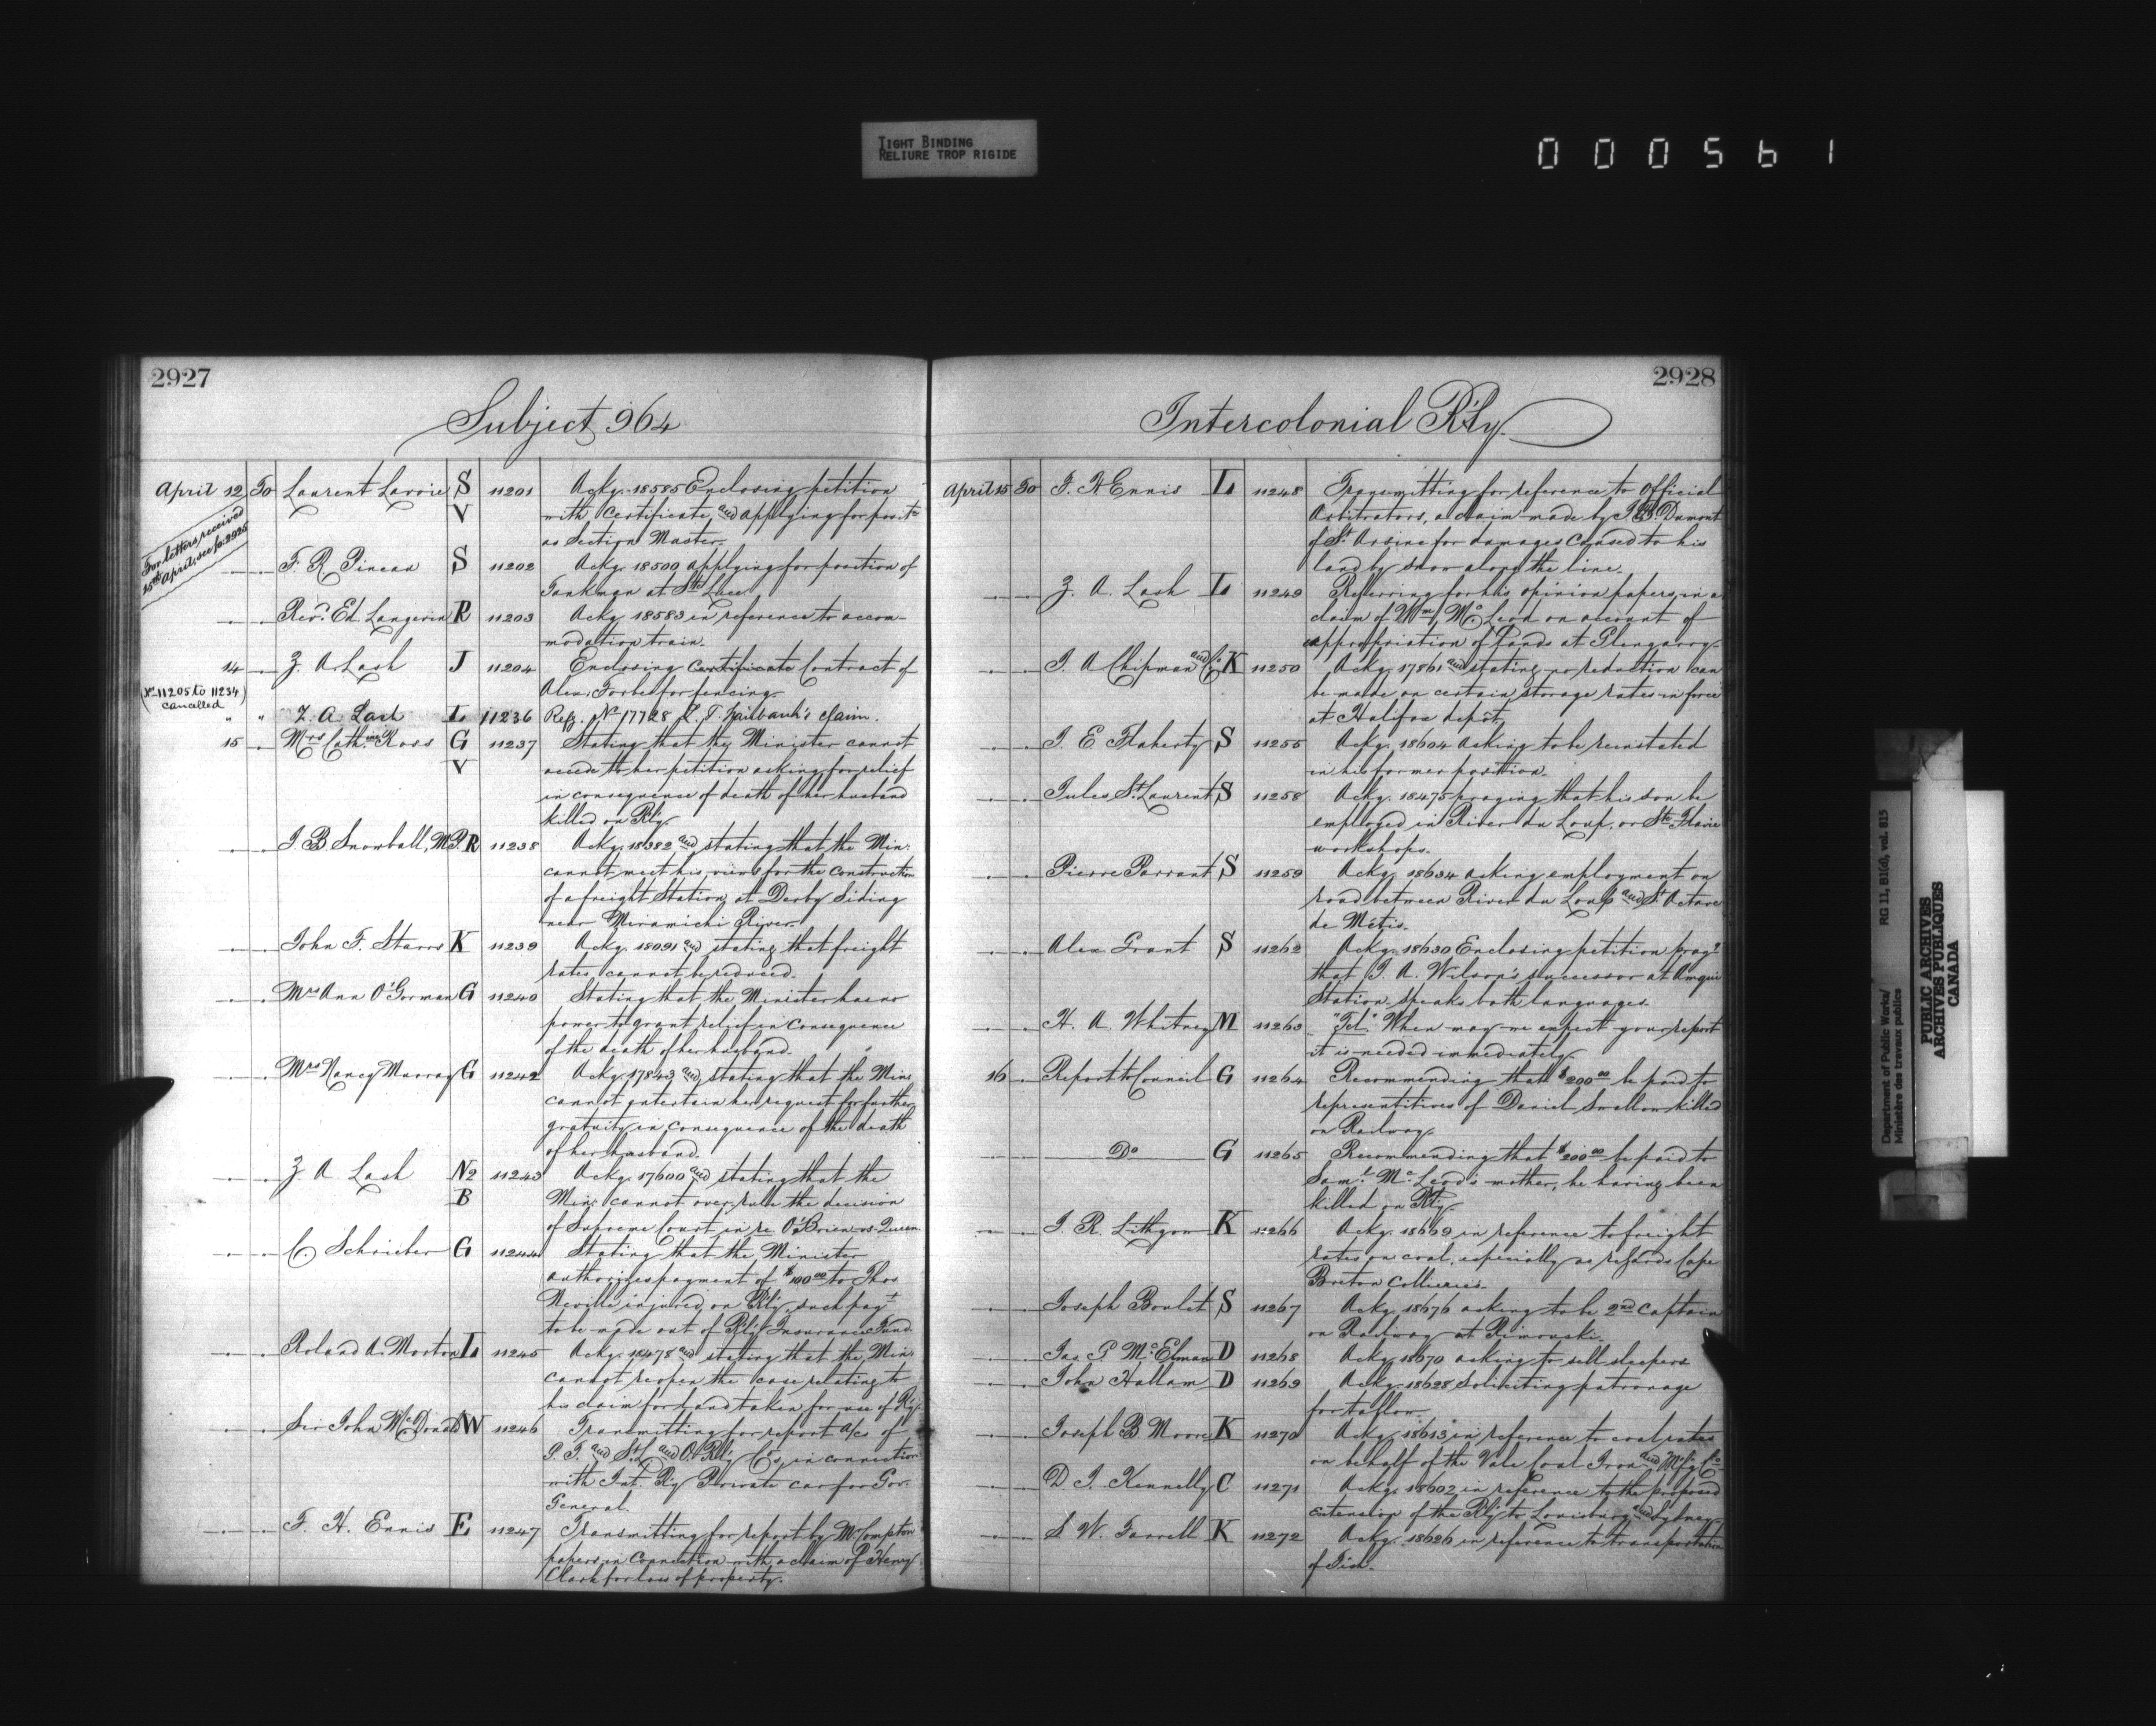 TIGHT BINDING
RELIURE TROP RIGIDE
000561
2927
Subject 964
April 12 To Laurent Lavoie S 11201 Ackg. 18585 Enclosing petition
V with Certificate and applying for posit.
as Section Master.
For letters received
15th April, see fo: 2925
F. R. Pineau S 11202 Ackg. 18500 applying for position of
Tankman at Ste Luce
Revd. Ed. Langevin R 11203 Ackg. 18583 in reference to accom-
modation train.
14 Z. A. Lash J 11204 Enclosing Certificate Contract of
Alex. Forbes for fencing.
(No 11205 to 11234
cancelled)
" " Z. A. Lash L 11236 Refg. No 17728 Fairbank's claim.
15 Mrs Cathine Ross G 11237 Stating that the Minister cannot
V accede to her petition asking for relief
in consequence of death of her husband
killed on Rly.
J. B. Snowball, M.P. R 11238 Ackg. 18382 and stating that the Min:
cannot meet his views for the construction
of a freight Station at Derby Siding
near Miramichi River.
John F. Stairs K 11239 Ackg. 18091 and stating that freight
rates cannot be reduced.
Mrs Ann O'Gorman G 11240 Stating that the Minister has no
power to grant relief in consequence
of the death of her husband.
Mrs Nancy Murray G 11242 Ackg. 17843 and stating that the Min:
cannot entertain her request for further
gratuity in consequence of the death
of her husband.
Z. A. Lash N2 11243 Ackg. 17600 and stating that the
B Min: cannot over rule the decision
of Supreme Court in re O'Brien vs. Queen.
C. Schrieber G 11244 Stating that the Minister
authorizes payment of $100.00 to Thos
Neville injured on Rly, such payt
to be made out of Rly Insurance Fund.
Roland A. Morton L 11245 Ackg. 18478 and stating that the Min:
cannot reopen the case relating to
his claim for land taken for use of Rly.
Sir John McDonald W 11246 Transmitting for report a/cs of
G. T. and St. L. and O. Rly Cos, in connection
with Int. Rly Private car for Gov.
General.
F. H. Ennis E 11247 Transmitting for report by Mr Compton
papers in Connection with a claim of P. Henry
Clark for loss of property.
2928
Intercolonial R'ly.
April 15 To F. H. Ennis L 11248 Transmitting for reference to Official
Arbitrators, a claim made by J. B. Dumont
of St. Arsine for damages Caused to his
land by snow along the line.
Z. A. Lash L 11249 Referring for his opinion papers in a
claim of Wm McLeod on account of
appropriation of lands at Glengarry.
J. A. Chipman and Co K 11250 Ackg. 17861 and stating no reduction can
be made on certain storage rates in force
at Halifax depôt.
J. E. Flaherty S 11255 Ackg. 18604 asking to be reinstated
in his former position.
Jules St. Laurent S 11258 Ackg. 18475 praying that his son be
employed in River du Loup, or Ste Flavie
workshops.
Pierre Parrant S 11259 Ackg. 18634 asking employment on
road between River du Loup and St. Octave
de Métis.
Alex Grant S 11262 Ackg. 18630 Enclosing petition prayg
that J. A. Wilson's successor at Amqui
Station speaks both languages.
H. A. Whitney M 11263 "Tel." When may we expect your report
it is needed immediately.
16 Report to Council G 11264 Recommending that $200.00 be paid to
representitives of Daniel Swallow killed
on Railway.
Do G 11265 Recommending that $200.00 be paid to
Saml. McLeod's mother, he having been
killed on Rly.
J. R. Lithgow K 11266 Ackg. 18669 in reference to freight
rates on coal, especially as regards Cape
Breton Collieries.
Joseph Boulet S 11267 Ackg. 18676 asking to be 2nd Captain
on Railway at Rimouski.
Jas. P. McElman D 11268 Ackg. 18670 asking to sell sleepers
John Hallam D 11269 Ackg. 18628 Soliciting patronage
for tallow.
Joseph B. Moore K 11270 Ackg. 18613 in reference to coal rates
on behalf of the Vale Coal Iron and Mfg. Co.
D. J. Kennelly C 11271 Ackg. 18602 in reference to the proposed
extension of the Rly to Louisburg and Sydney.
S. W. Farrell K 11272 Ackg. 18626 in reference to transportation
of Fish.
Department of Public Works/ RG 11, B1(d), vol. 815
Ministère des travaux publics
PUBLIC ARCHIVES
ARCHIVES PUBLIQUES
CANADA